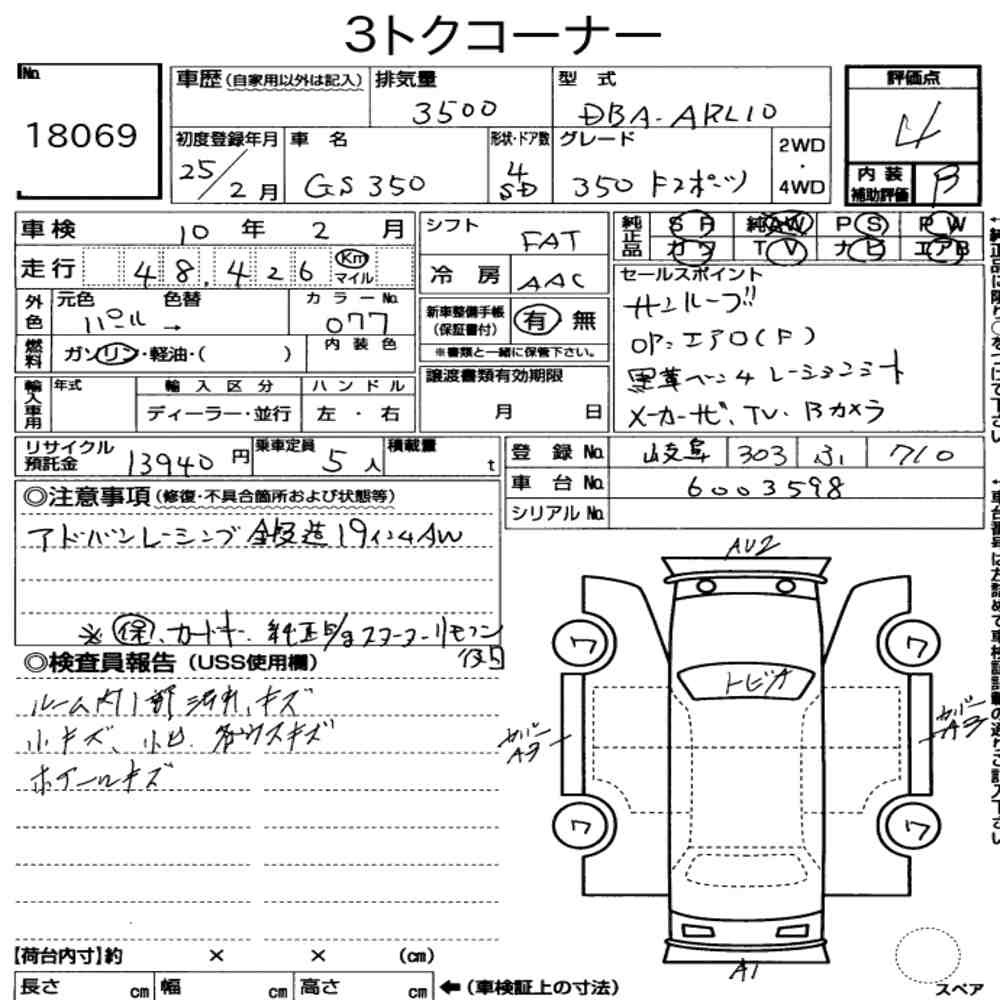 3トクコーナー
No.
18069
車歴(自家用以外は記入)
排気量
3500
型 式
DBA-ARL10
評価点
4
初度登録年月
25/2月
車 名
GS350
形状・ドア数
4
SD
グレード
350 Fスポーツ
2WD
・
4WD
内装
補助評価
B
車検 10 年 2 月
シフト
FAT
純正品
SR 純AW PS PW
カワ TV ナビ エアB
走行 48,426 Km
マイル
冷房 AAC
セールスポイント
サンルーフ!!
OP:エアロ(F)
黒革ベンチレーションシート
メーカーナビ、TV、Bカメラ
外色
元色
パール
色替
→
カラーNo.
077
新車整備手帳
(保証書付)
有 無
※書類と一緒に保管下さい。
燃料
ガソリン・軽油・( )
内装色
輸入車用
年式
輸入区分
ディーラー・並行
ハンドル
左・右
譲渡書類有効期限
月 日
リサイクル
預託金
13940円
乗車定員
5人
積載量
t
登録No. 岐阜 303 ふ 710
車台No. 6003598
シリアルNo.
◎注意事項(修復・不具合箇所および状態等)
アドバンレーシング鍛造19インチAW
※保、カードキー、純正
スターターリモコン
◎検査員報告(USS使用欄)
ルーム内1部汚れ、キズ
小キズ、小凹、各ウスキズ
ホイールキズ
AU2
トビA
ワ
ワ
ワ
ワ
カバー
A3
カバー
A3
A1
スペア
【荷台内寸】約 × × (cm)
長さ cm 幅 cm 高さ cm ←(車検証上の寸法)